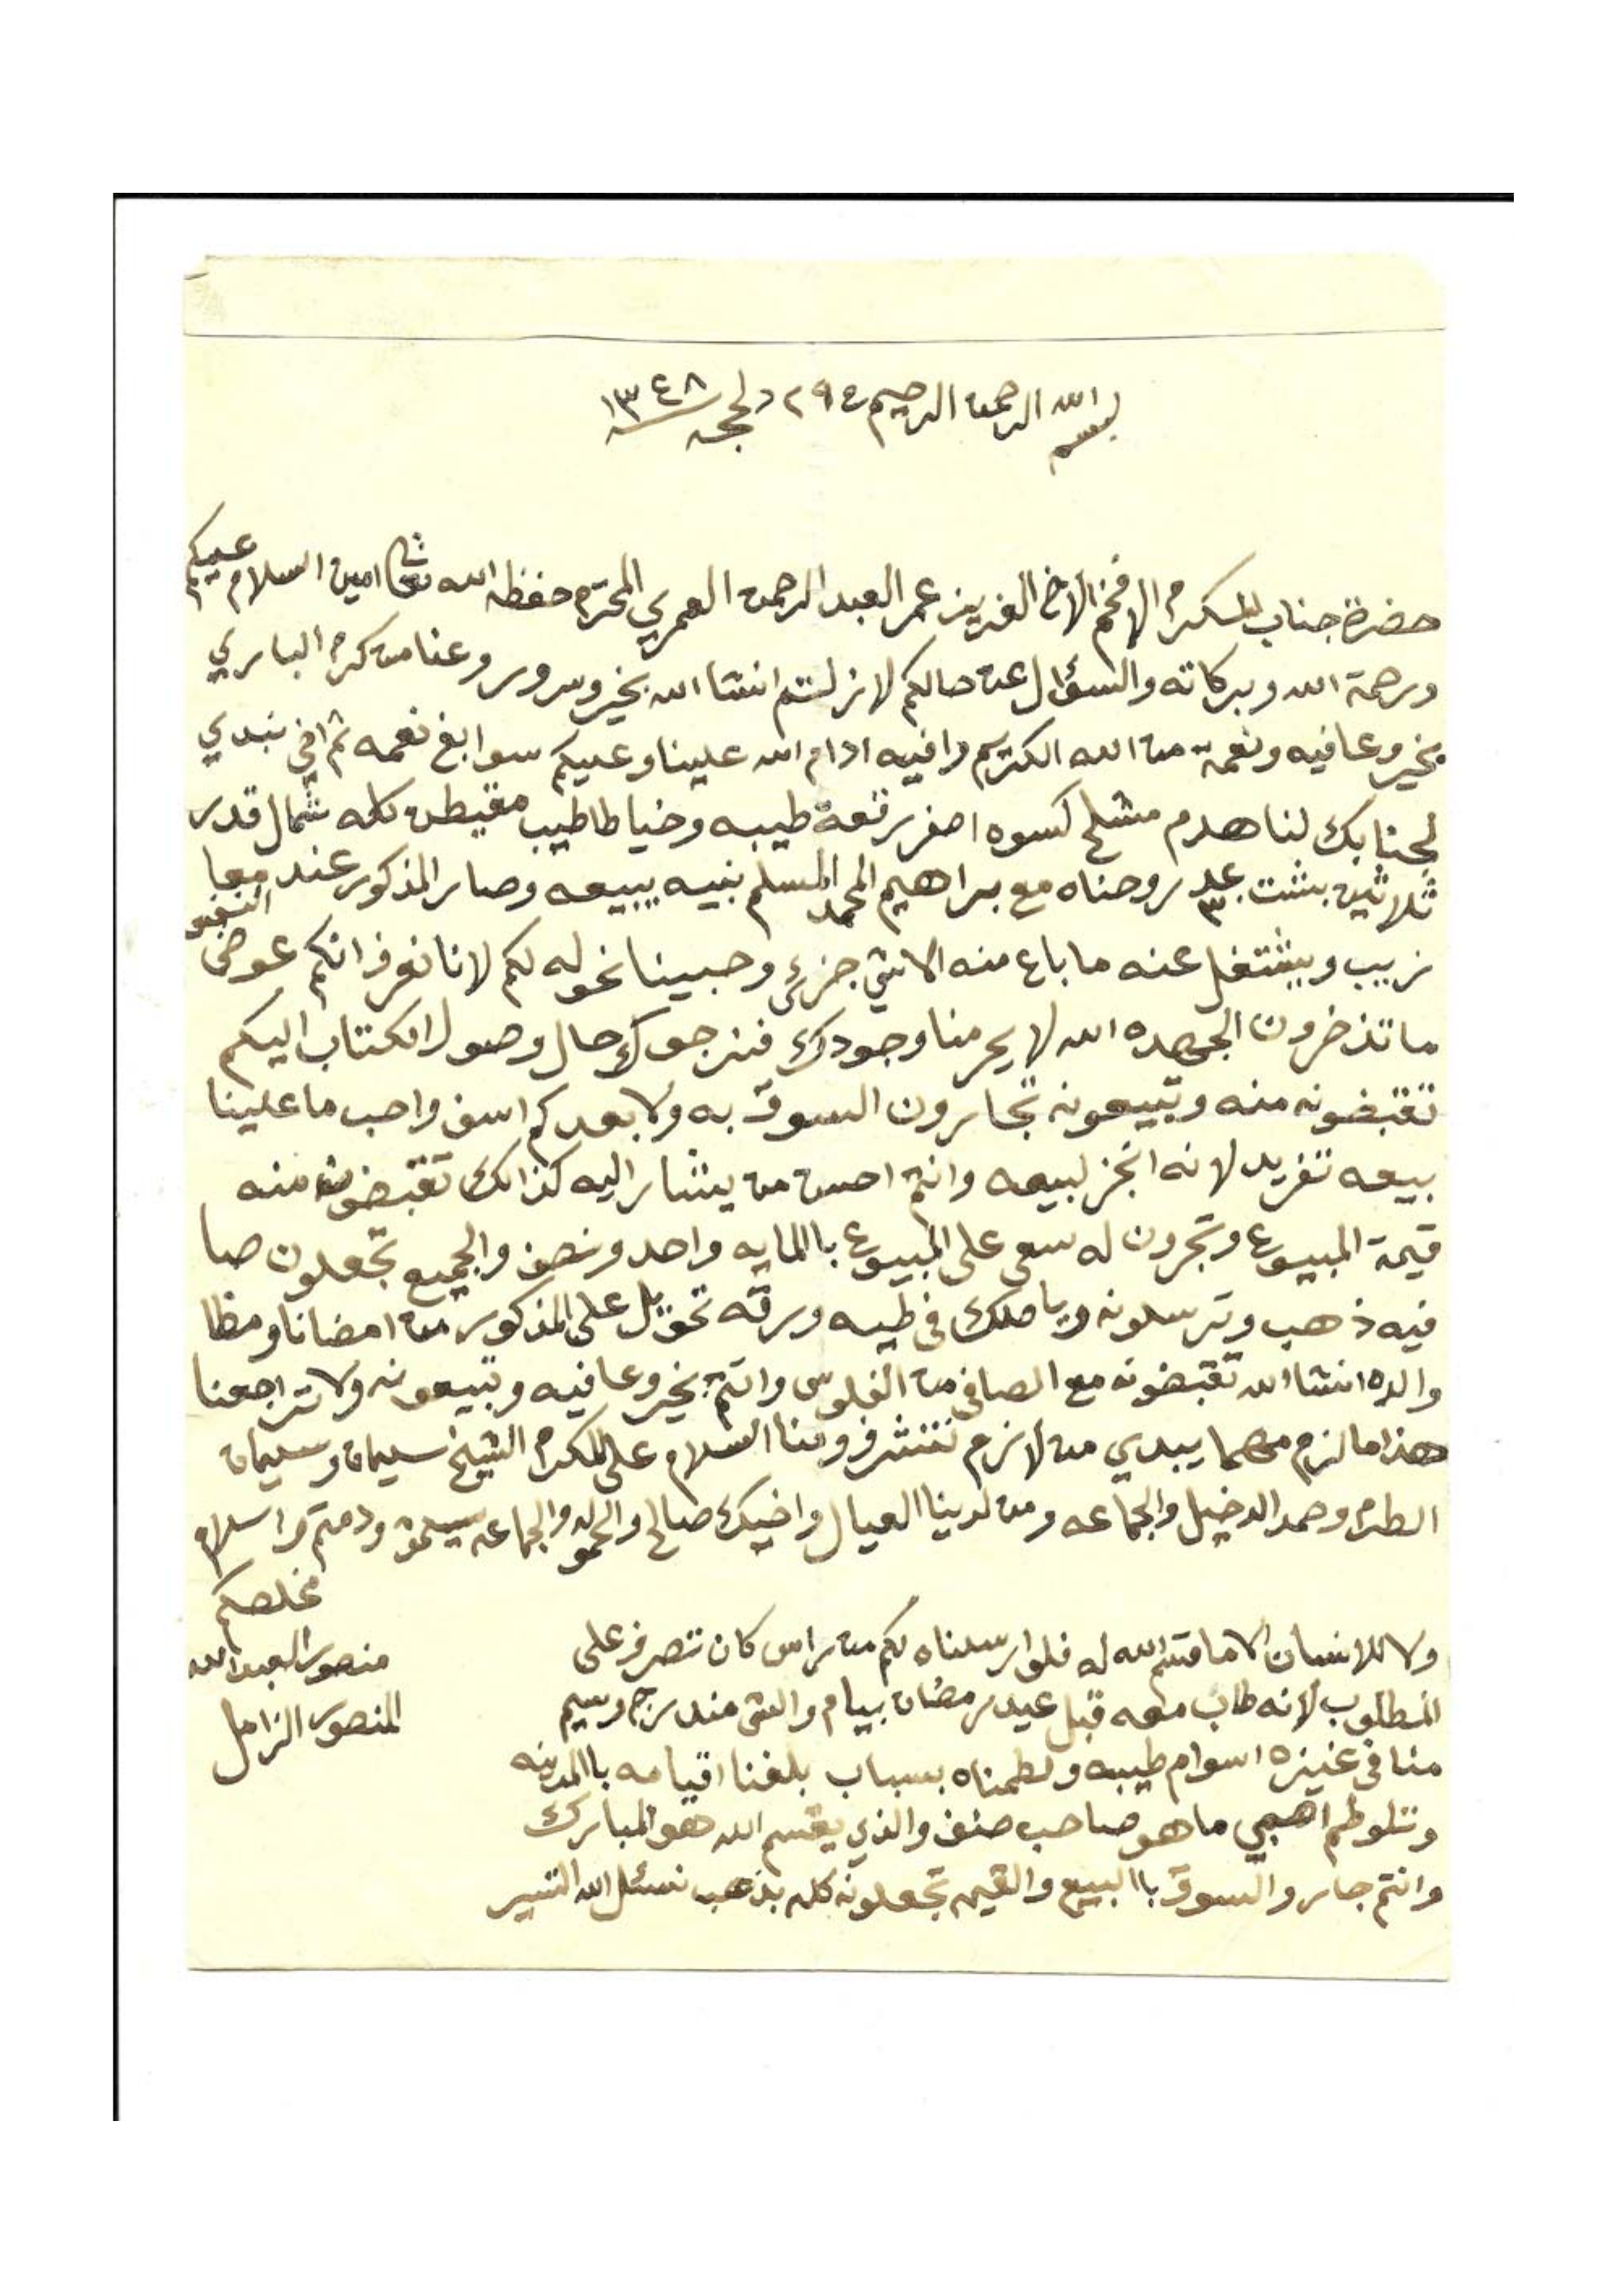 بسم الله الرحمن الرحيم ٢٩ ذلحجه ١٣٤٨
حضرة جناب المكرم الافخم الاخ العزيز عمر العبد الرحمن العمري المحترم حفظه الله تعالى امين السلام عليكم
ورحمة الله وبركاته والسؤال عن حالكم لازلتم انشا الله بخير وسرور وعنا من كرم الباري
بخير وعافيه ونعمة من الله الكريم وافيه ادام الله علينا وعليكم سوابغ نعمه ثم اخي نبدي
لجنابك لنا هدم مشلح كسوه اصفر رقعة طيبه وخياطا طيب مقيطن كله شمال قدر
ثلاثين بشت عدد ٣٠ روحناه مع براهيم المحمد المسلم بنيه يبيعه وصار المذكور عند
زبيب ويشتغل عنه ما باع منه الا شي جزءي وحبينا نحوله لكم لانا نعرف انكم عوض النفس
ما تذخرون الجهده الله لا يحرمنا وجودك فنرجوك حال وصول الكتاب اليكم
تقبضونه منه وتبيعونه تجارون السوق به ولا بعدكم اسف واحب ما علينا
بيعه تفريد لانه انجز لبيعه وانتم احسن من يشار اليه كذالك تقبضون منه
قيمة المبيوع وتجرون له سعي على المبيوع باالمايه واحد ونصف والجميع تجعلون صا
فيه ذهب وترسلونه وياصلك في طيه ورقه تحويل على المذكور من امضانا ومضا
والده انشا الله تقبضونه مع الصافي من الفلوس وانتم بخير وعافيه وتبيعونه ولا تراجعنا
هذا ما لزم مهما يبدي من لازم نتشرف ومنا السلام على المكرم الشيخ سليمان وسليمان
الطرم وحمد الدخيل والجماعه ومن لدينا العيال واخيك صالح والحموله والجماعه يسلمون ودمتم والسلام
مخلصكم
منصور العبدالله
المنصور الزامل
ولا للانسان الا ما قسم الله له فلو ارسلناه لكم من راس كان تصرف على
المطلوب لانه طاب معه قبل عيد رمضان بيام والشي مندرج وسيم
منا في عنيزه اسوام طيبه ولطمناه بسباب بلغنا اقيامه باالمدينه
ما هو صاحب صنف والذي يقسم الله هو المبارك
وانتم جاروا السوق باالبيع والقيمه تجعلونه كله بذهب نسئل الله التيسير